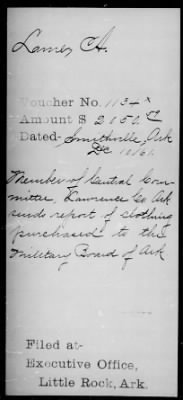 Lames A.
Voucher No. 1134 x
Amount $ 2050.
Dated- Smithville, Ark
Dec 10/61.
Member of Central Com-
mittee, Lawrence Co Ark
sends report of clothing
purchased to the
Military Board of Ark
Filed at-
Executive Office,
Little Rock, Ark.